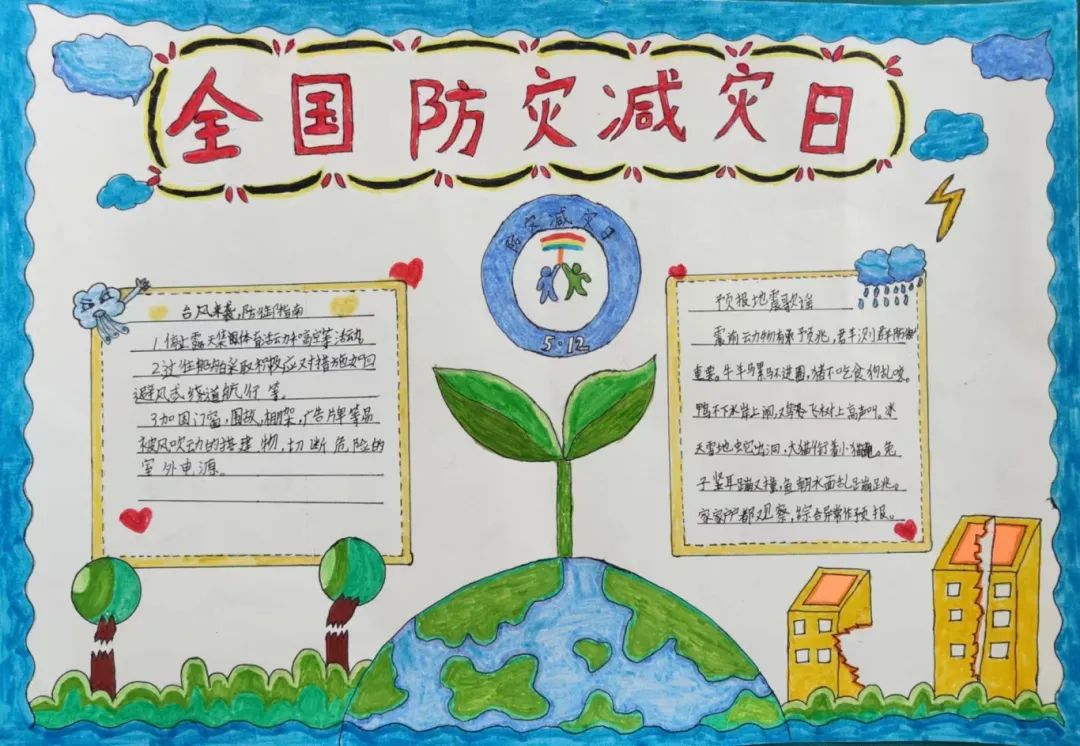 全国防灾减灾日
防灾减灾日
5·12
台风来袭,防御指南
1停止露天集体活动和高空等活动
2过往船舶采取积极应对措施如回
避风或绕道航行等。
3加固门窗,围板,棚架,广告牌等易
被风吹动的搭建物,切断危险的
室外电源。
预报地震歌谣
震前动物有预兆,群测群防
重要。牛羊马骡不进圈,猪不吃食狗乱咬。
鸭不下水岸上闹,鸡飞树上高声叫。冰
天雪地蛇出洞,大猫衔着小猫跑。兔
子竖耳蹦又撞,鱼翻水面乱蹦跳。
家家户户都观察,综合异常作预报。